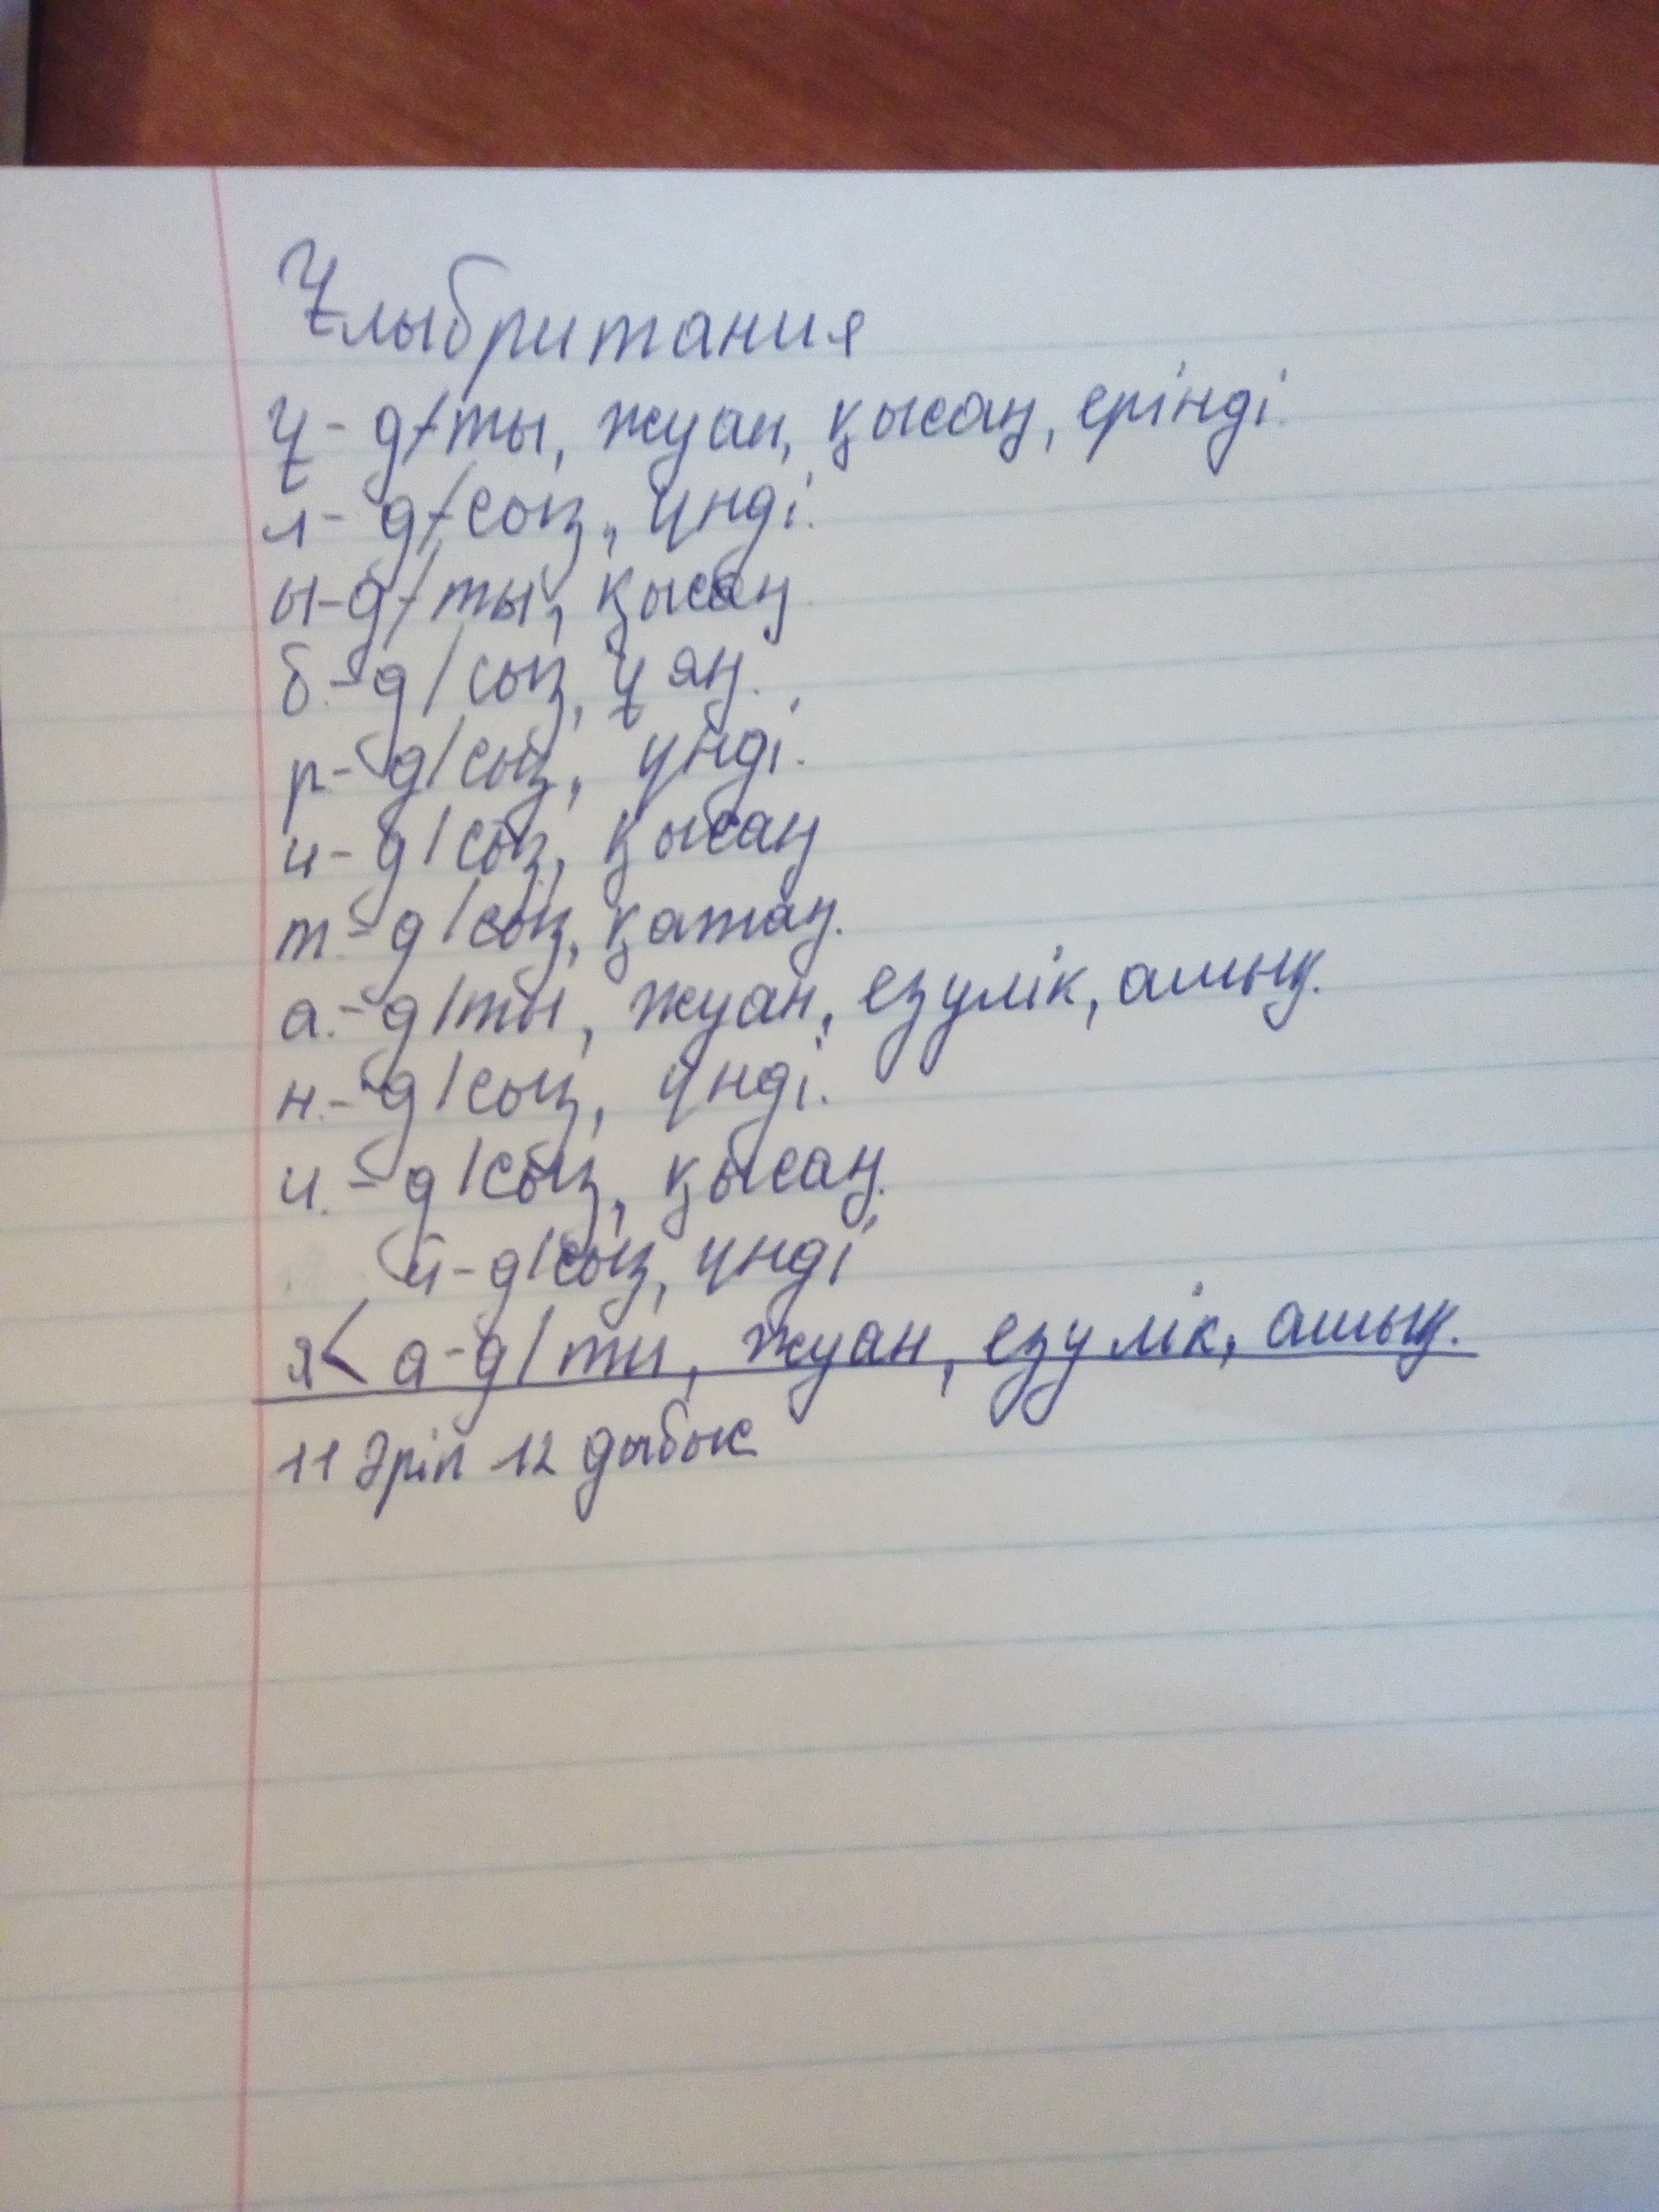 Ұлыбритания
ұ- д/ты, жуан, қысаң, ерінді.
л- д/сыз, үнді.
ы-д/ты, қысаң
б.-д/сыз, ұяң.
р-д/сыз, үнді.
и-д/сыз, қысаң
т.-д/сыз, қатаң.
а.-д/ты, жуан, езулік, ашық.
н.-д/сыз, үнді.
и.-д/сыз, қысаң.
й-д/сыз, үнді
я< а-д/ты, жуан, езулік, ашық.
11 әріп 12 дыбыс